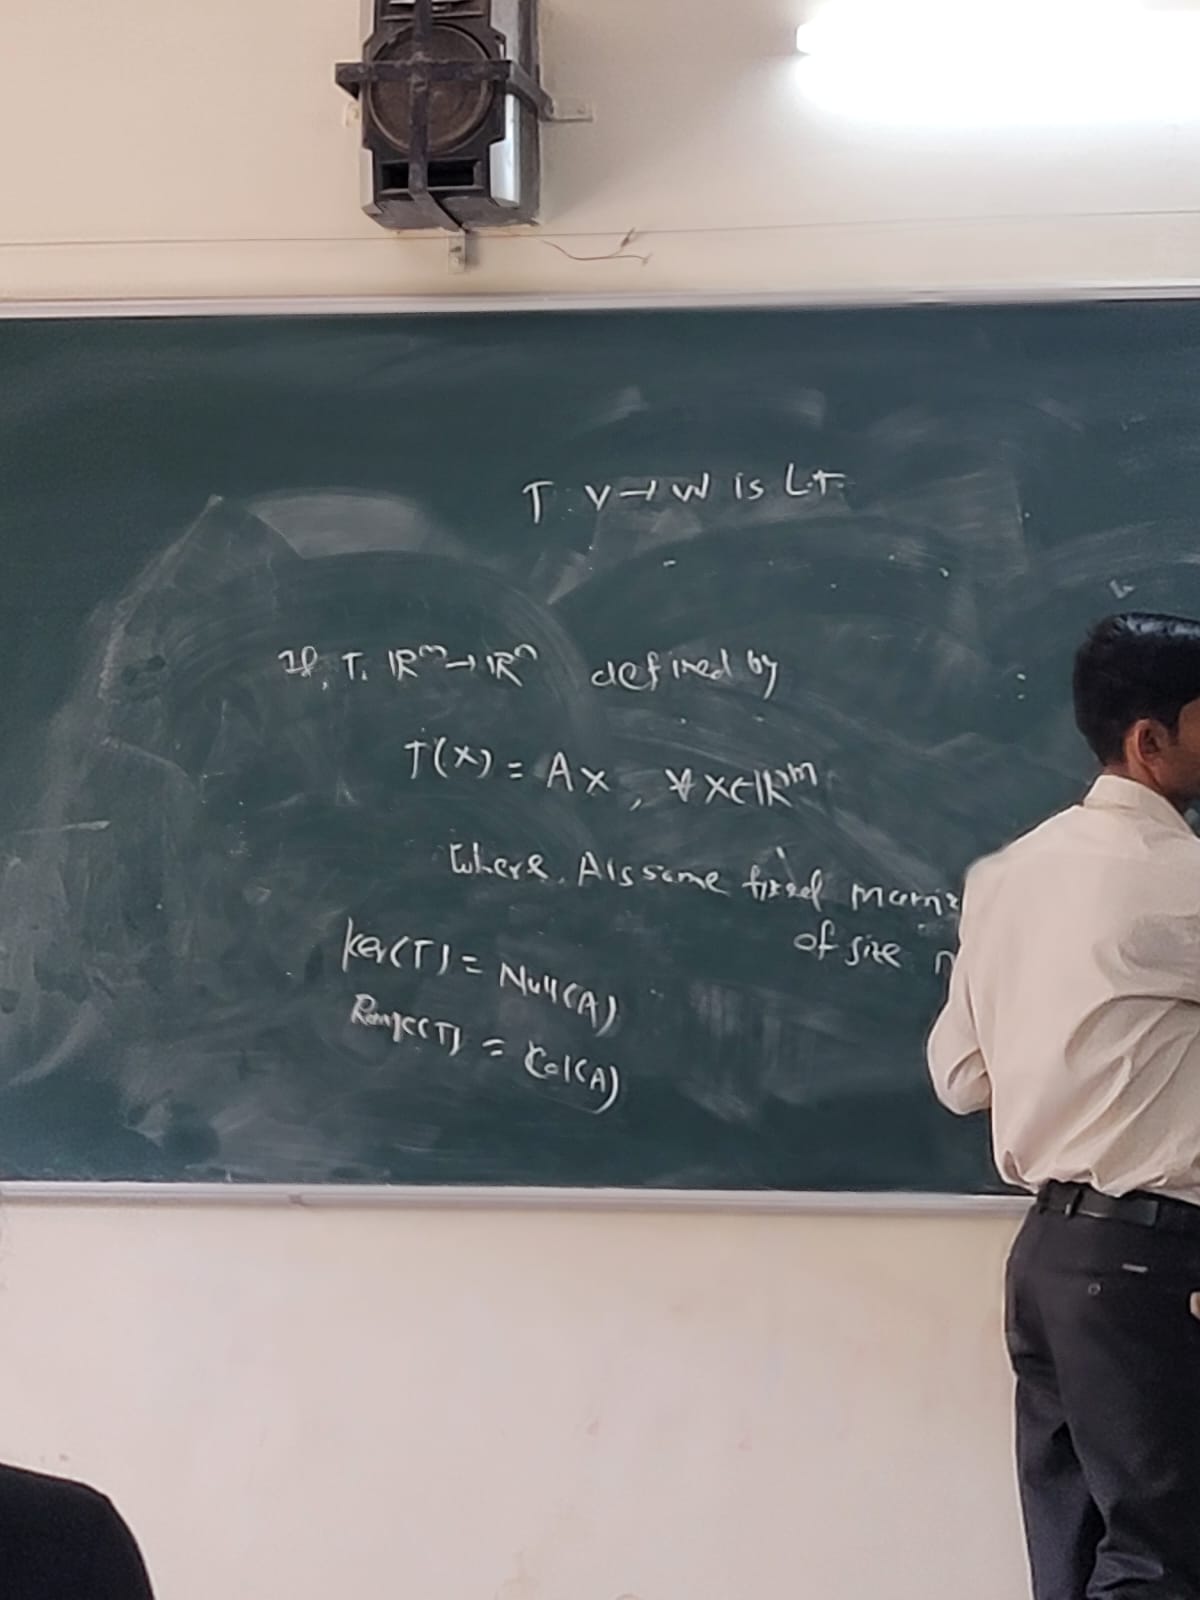 T: V → W is L.T.
If, T: ℝᵐ → ℝⁿ defined by
T(x) = Ax, ∀ x ∈ ℝᵐ
Where, A is some fixed matrix
of size n
Ker(T) = Null(A)
Range(T) = Col(A)